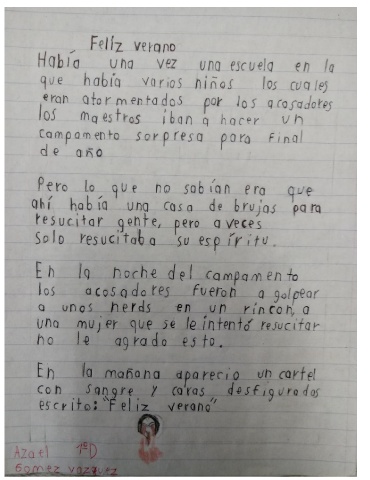 Feliz verano
Había una vez una escuela en la
que había varios niños los cuales
eran atormentados por los acosadores
los maestros iban a hacer un
campamento sorpresa para final
de año
Pero lo que no sabían era que
ahí había una casa de brujas para
resucitar gente, pero a veces
solo resucitaba su espíritu.
En la noche del campamento
los acosadores fueron a golpear
a unos nerds en un rincón, a
una mujer que se le intentó resucitar
no le agrado esto.
En la mañana apareció un cartel
con sangre y caras desfiguradas
escrito: "Feliz verano"
Azael 1ºD
Gomez Vazquez